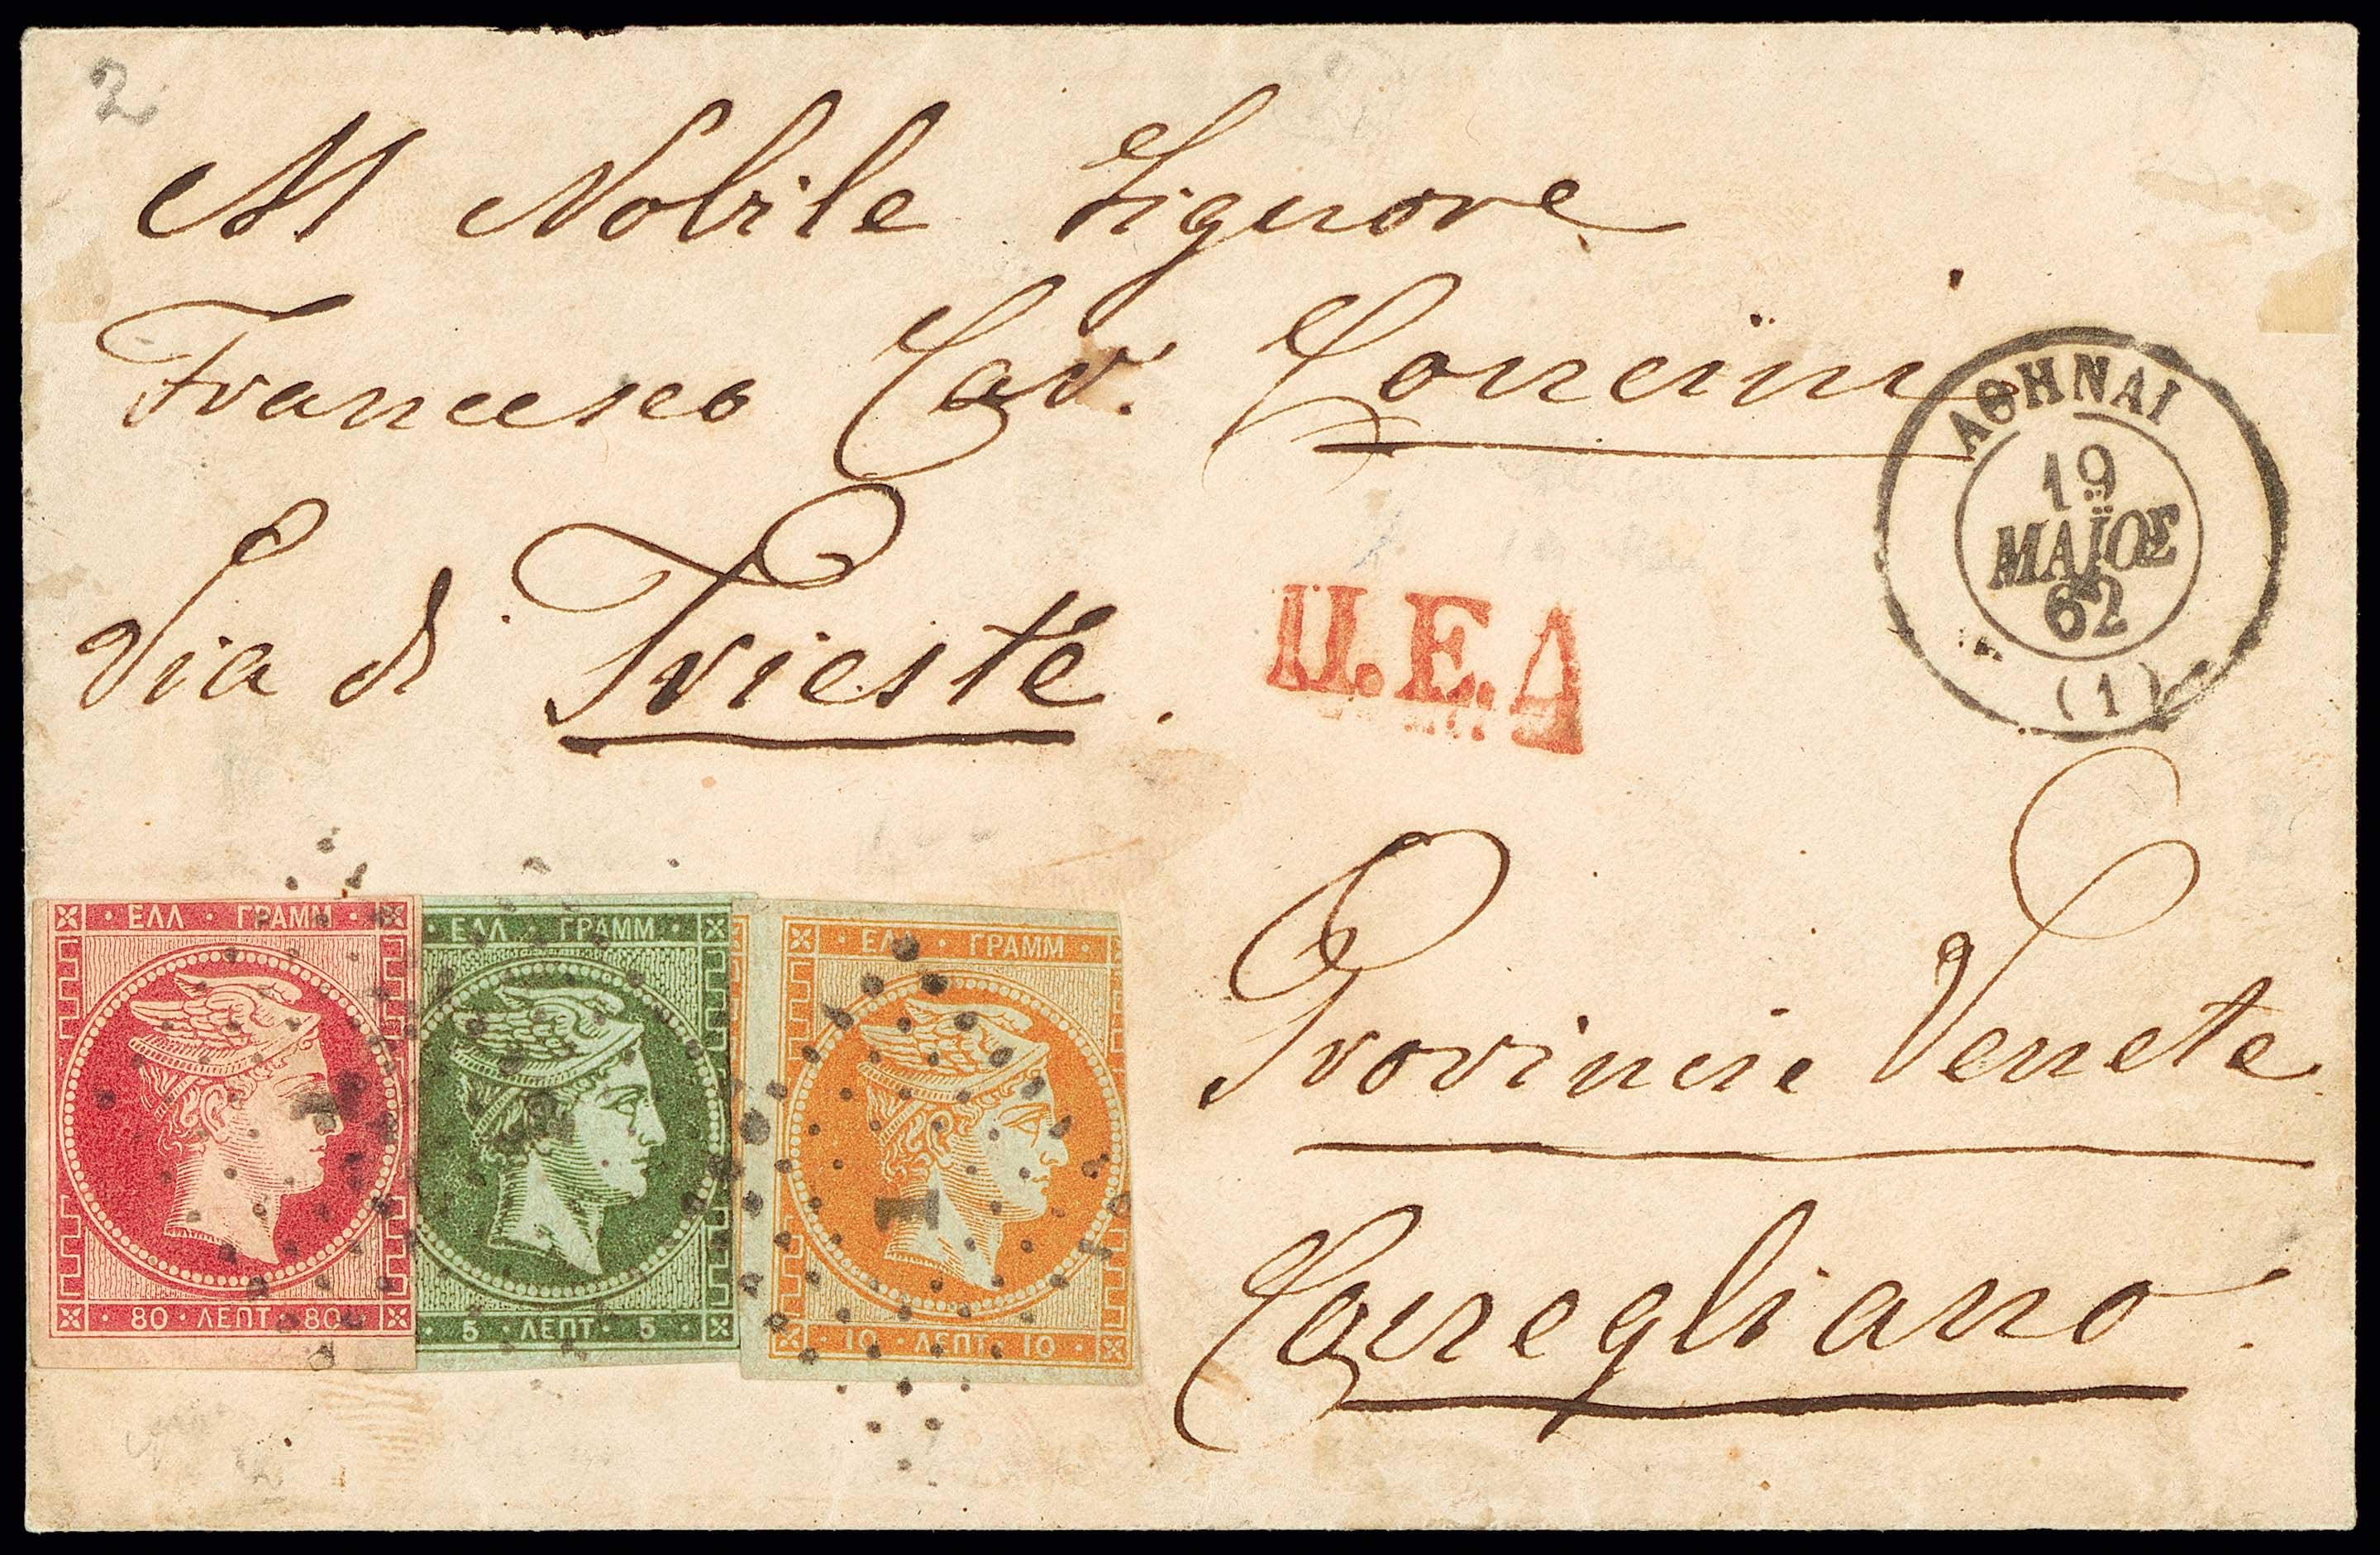 2
Al Nobile Signore
Francesco Cav. Concini
Via di Trieste.
ΑΘΗΝΑΙ
19
ΜΑΪΟΣ
62
(1)
Π.Ε.Δ
ΕΛΛ · ΓΡΑΜΜ
80 · ΛΕΠΤ · 80
ΕΛΛ · ΓΡΑΜΜ
5 · ΛΕΠΤ · 5
ΕΛΛ · ΓΡΑΜΜ
10 · ΛΕΠΤ · 10
1
Provincie Venete
Conegliano.